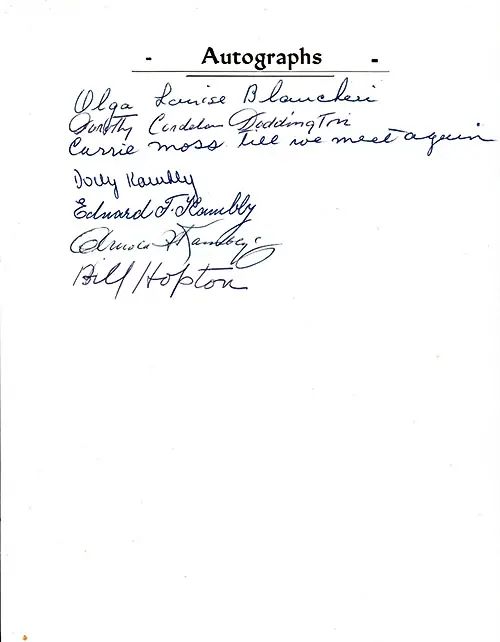 - Autographs -
Olga Louise Blancheri
Dorothy Cordelan Doddington
Carrie Moss till we meet again
Dolly Kambly
Edward F. Kambly
Kambly
Bill Hopton